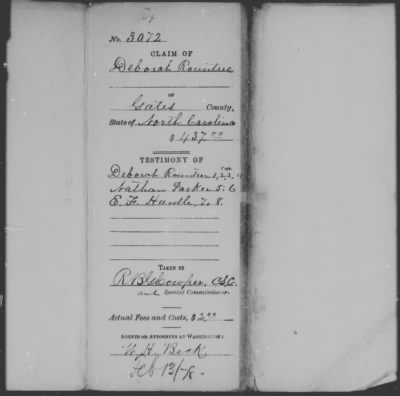 No. 3072
CLAIM OF
Deborah Rountree
OF
Gates County,
State of North Carolina
$ 437.00
TESTIMONY OF
Page.
Deborah Rountree 1, 2, 3,
Nathan Parker 5. 6
E. F. 7. 8.
TAKEN BY
R. B. G. Cowper, C.S.C.
and Special Commissioner.
Actual Fees and Costs, $ 2.00
AGENTS OR ATTORNEYS AT WASHINGTON:
W. H. Beck
Feb 13/78.